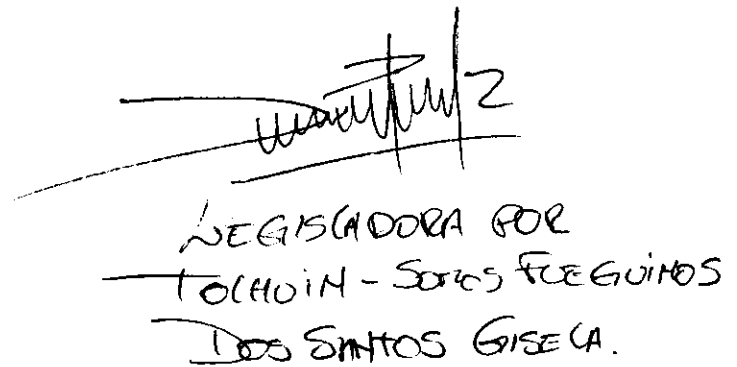 LEGISLADORA POR
TOLHUIN - SOMOS FUEGUINOS
DOS SANTOS GISELA.